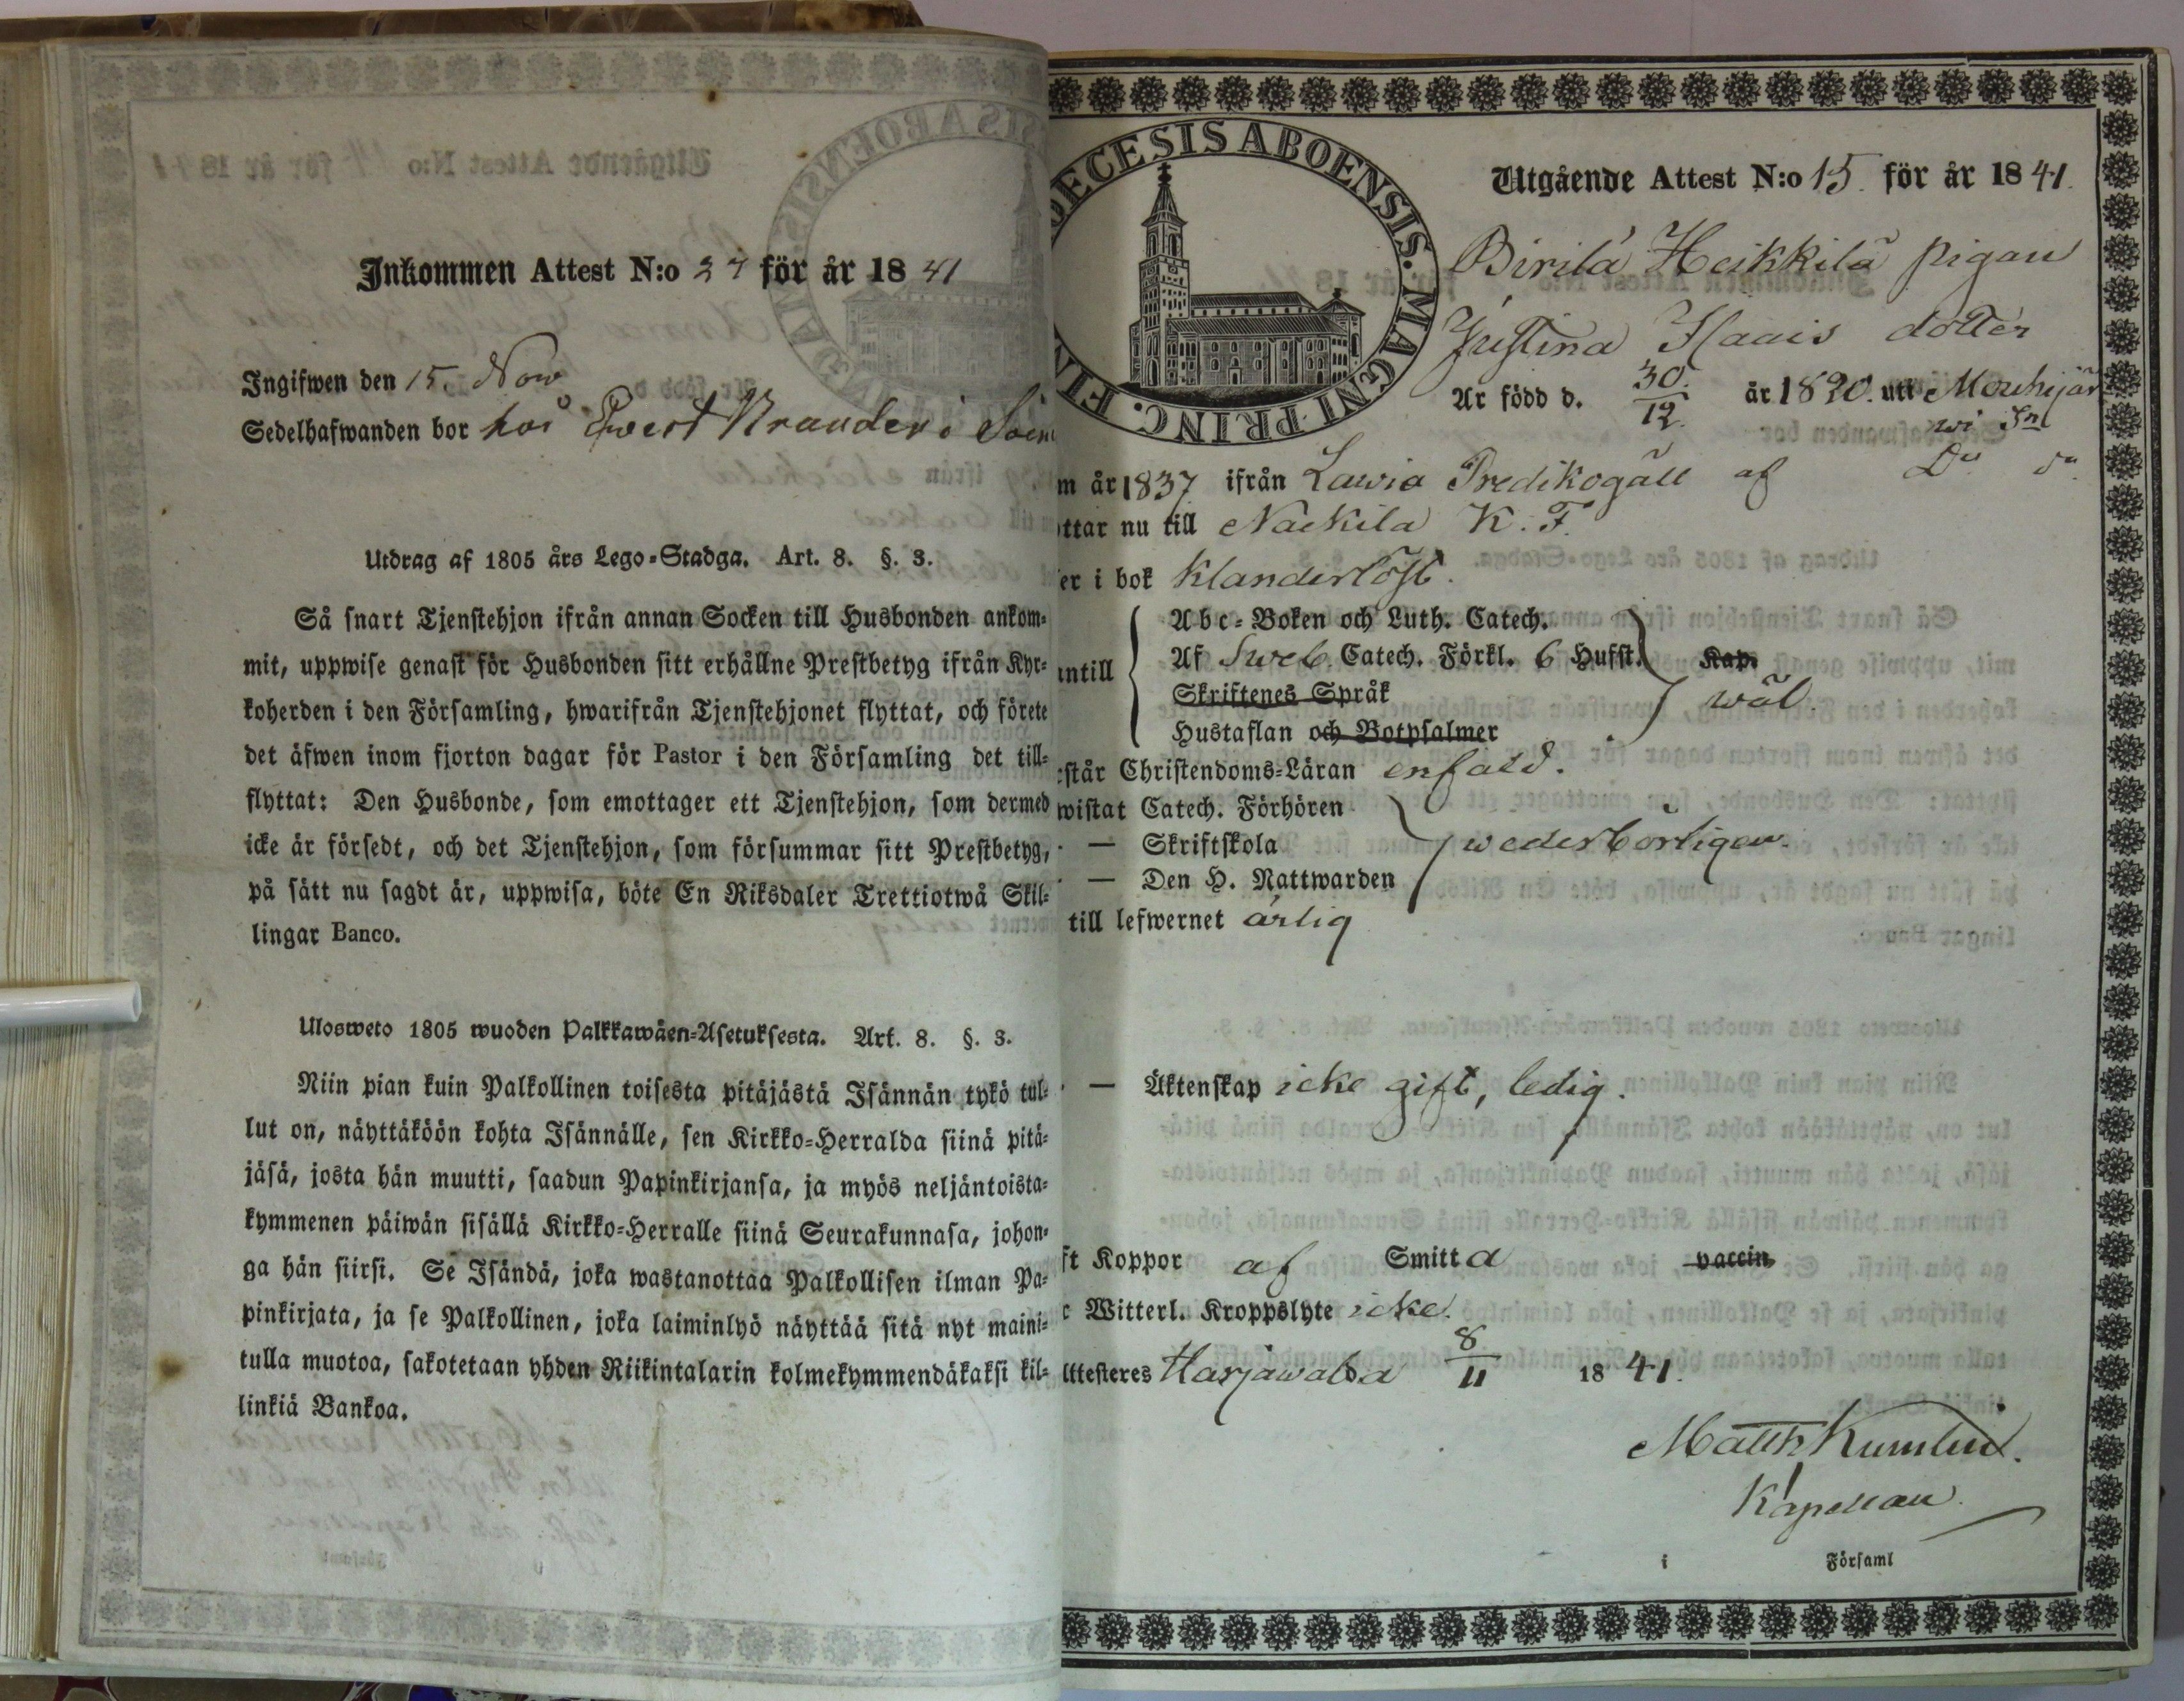 Inkommen Attest N:o 27 för år 1841
Ingifwen den 15. Nov
Sedelhafwanden bor hos Ewert Nrander i Soin
Utdrag af 1805 års Lego-Stadga. Art. 8. §. 3.
Så snart Tjenstehjon ifrån annan Socken till Husbonden ankom-
mit, uppwise genast för Husbonden sitt erhållne Prestbetyg ifrån Kyr-
koherden i den Församling, hwarifrån Tjenstehjonet flyttat, och förete
det äfwen inom fjorton dagar för Pastor i den Församling det till-
flyttat: Den Husbonde, som emottager ett Tjenstehjon, som dermed
icke är försedt, och det Tjenstehjon, som försummar sitt Prestbetyg,
på sätt nu sagdt är, uppwisa, böte En Riksdaler Trettiotwå Skil-
lingar Banco.
Ulosweto 1805 wuoden Palkkawäen-Asetuksesta. Art. 8. §. 3.
Niin pian kuin Palkollinen toisesta pitäjästä Isännän tykö tul-
lut on, näyttäköön kohta Isännälle, sen Kirkko-Herralda siinä pitä-
jäsä, josta hän muutti, saadun Papinkirjansa, ja myös neljäntoista-
kymmenen päiwän sisällä Kirkko-Herralle siinä Seurakunnasa, johon-
ga hän siirsi. Se Isändä, joka wastanottaa Palkollisen ilman Pa-
pinkirjata, ja se Palkollinen, joka laiminlyö näyttää sitä nyt maini-
tulla muotoa, sakotetaan yhden Riikintalarin kolmekymmendäkaksi kil-
linkiä Bankoa.
ŒCESIS ABOENSIS. MAGNI PRINC. FIN
Utgående Attest N:o 15. för år 1841.
Birilä Heikkilä pigan
Justina Isaais dotter
Är född d. 30/12. år 1820. uti Mouhijär
wi Sn
m år 1837 ifrån Lawia Predikogäll af Do do
ttar nu till Nackila K. F.
er i bok klanderlöst.
Abc-Boken och Luth. Catech.
ntill Af Sweb. Catech. Förkl. 6 Hufst. Kap.
Skriftenes Språk wäl.
Hustaflan och Botpsalmer
står Christendoms-Läran enfald.
wistat Catech. Förhören
— Skriftskola wederbörligen.
— Den H. Nattwarden
till lefwernet ärlig
— Äktenskap icke gift, ledig.
ft Koppor af Smitta vaccin.
Witterl. Kroppslyte icke.
ttesteres Harjawalda 8/11 1841.
Matth Kumlin.
Kapellan.
i Församl